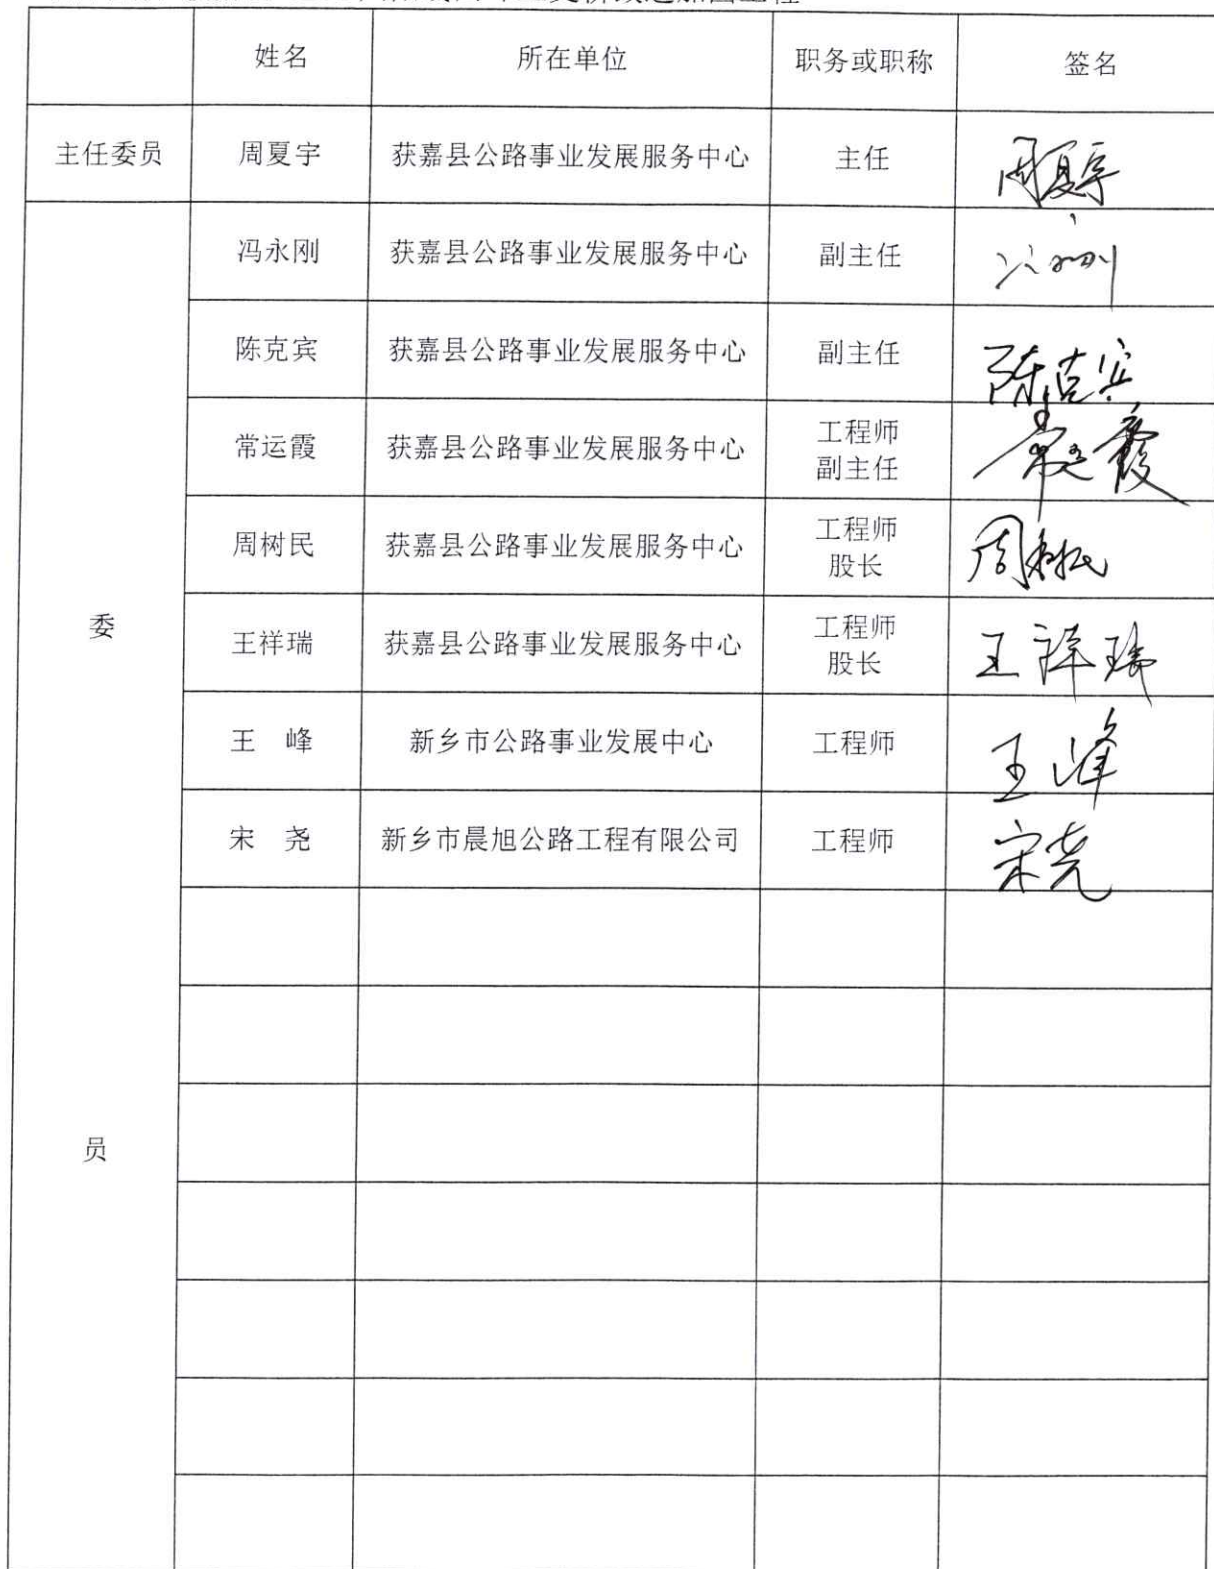 姓名 所在单位 职务或职称 签名
主任委员 周夏宇 获嘉县公路事业发展服务中心 主任 周夏宇
冯永刚 获嘉县公路事业发展服务中心 副主任
陈克宾 获嘉县公路事业发展服务中心 副主任 陈克宾
常运霞 获嘉县公路事业发展服务中心 工程师 常运霞
副主任
周树民 获嘉县公路事业发展服务中心 工程师 周树民
股长
委
王祥瑞 获嘉县公路事业发展服务中心 工程师 王祥瑞
股长
王 峰 新乡市公路事业发展中心 工程师 王峰
宋 尧 新乡市晨旭公路工程有限公司 工程师 宋尧
员